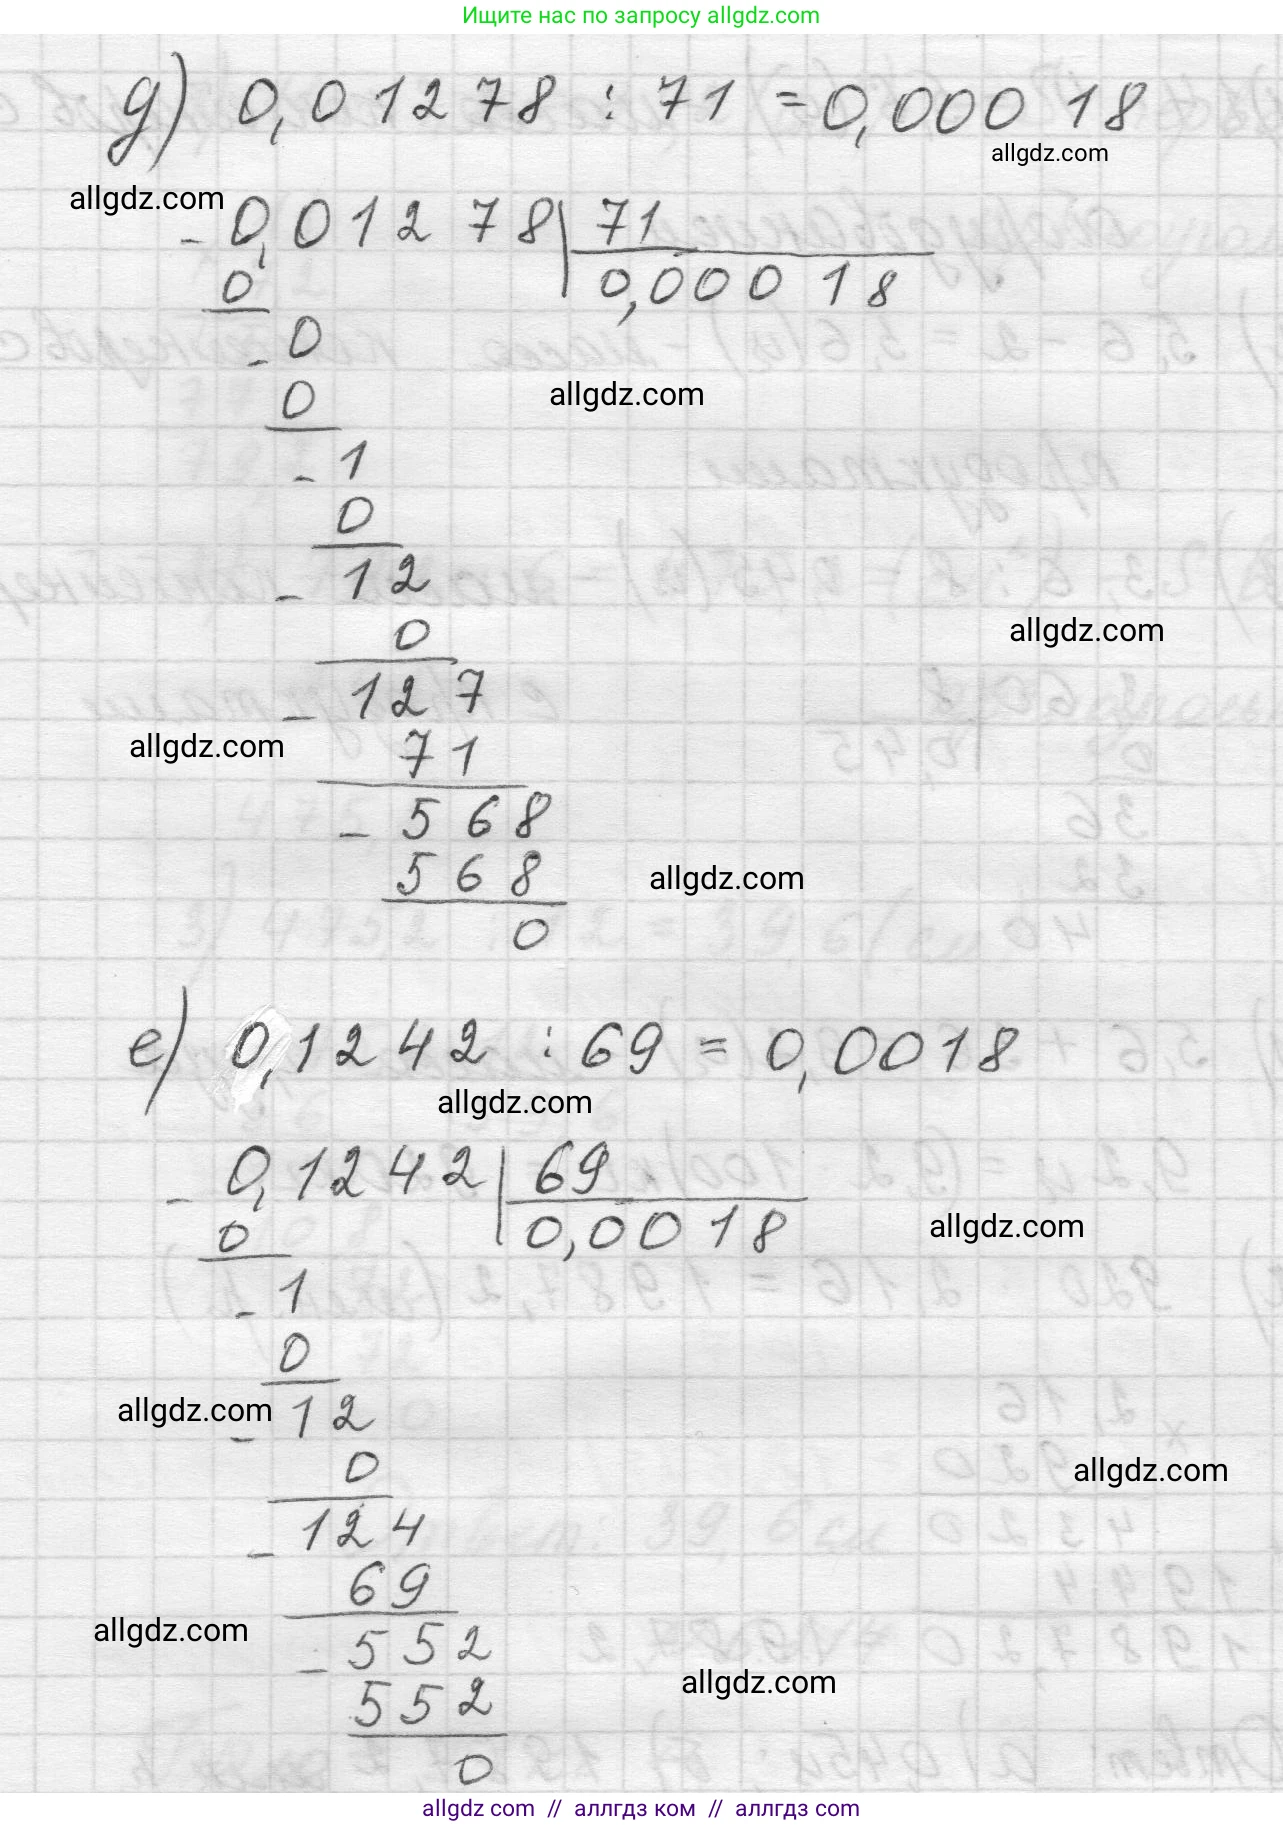 Ищите нас по запросу allgdz.com
д) 0,01278 : 71 = 0,00018
allgdz.com
allgdz.com
- 0,01278 | 71
0 0,00018
- 0
allgdz.com
0
- 1
0
- 12
allgdz.com
0
- 127
allgdz.com
71
- 568
568
allgdz.com
0
е) 0,1242 : 69 = 0,0018
allgdz.com
- 0,1242 | 69
0 0,0018
allgdz.com
- 1
0
allgdz.com
- 12
0
allgdz.com
- 124
69
allgdz.com
- 552
allgdz.com
552
0
allgdz.com // аллгдз ком // аллгдз com